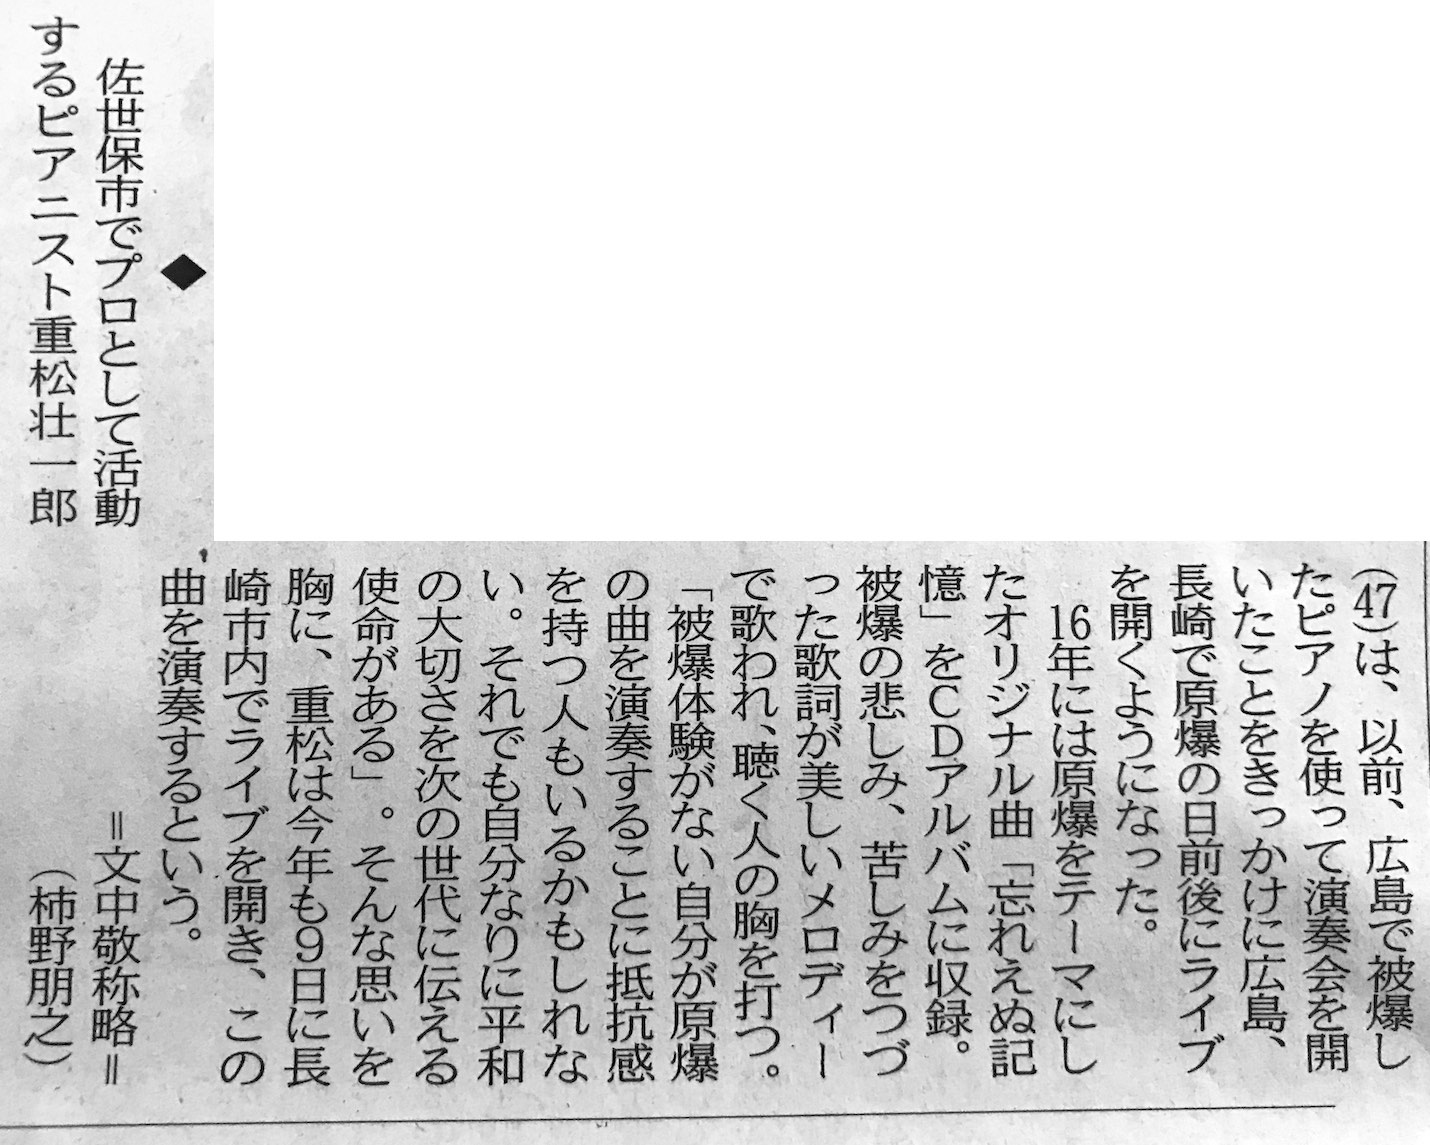 ◆
佐世保市でプロとして活動
するピアニスト重松壮一郎
(47)は、以前、広島で被爆し
たピアノを使って演奏会を開
いたことをきっかけに広島、
長崎で原爆の日前後にライブ
を開くようになった。
16年には原爆をテーマにし
たオリジナル曲「忘れえぬ記
憶」をCDアルバムに収録。
被爆の悲しみ、苦しみをつづ
った歌詞が美しいメロディー
で歌われ、聴く人の胸を打つ。
「被爆体験がない自分が原爆
の曲を演奏することに抵抗感
を持つ人もいるかもしれな
い。それでも自分なりに平和
の大切さを次の世代に伝える
使命がある」。そんな思いを
胸に、重松は今年も9日に長
崎市内でライブを開き、この
曲を演奏するという。
=文中敬称略=
(柿野朋之)